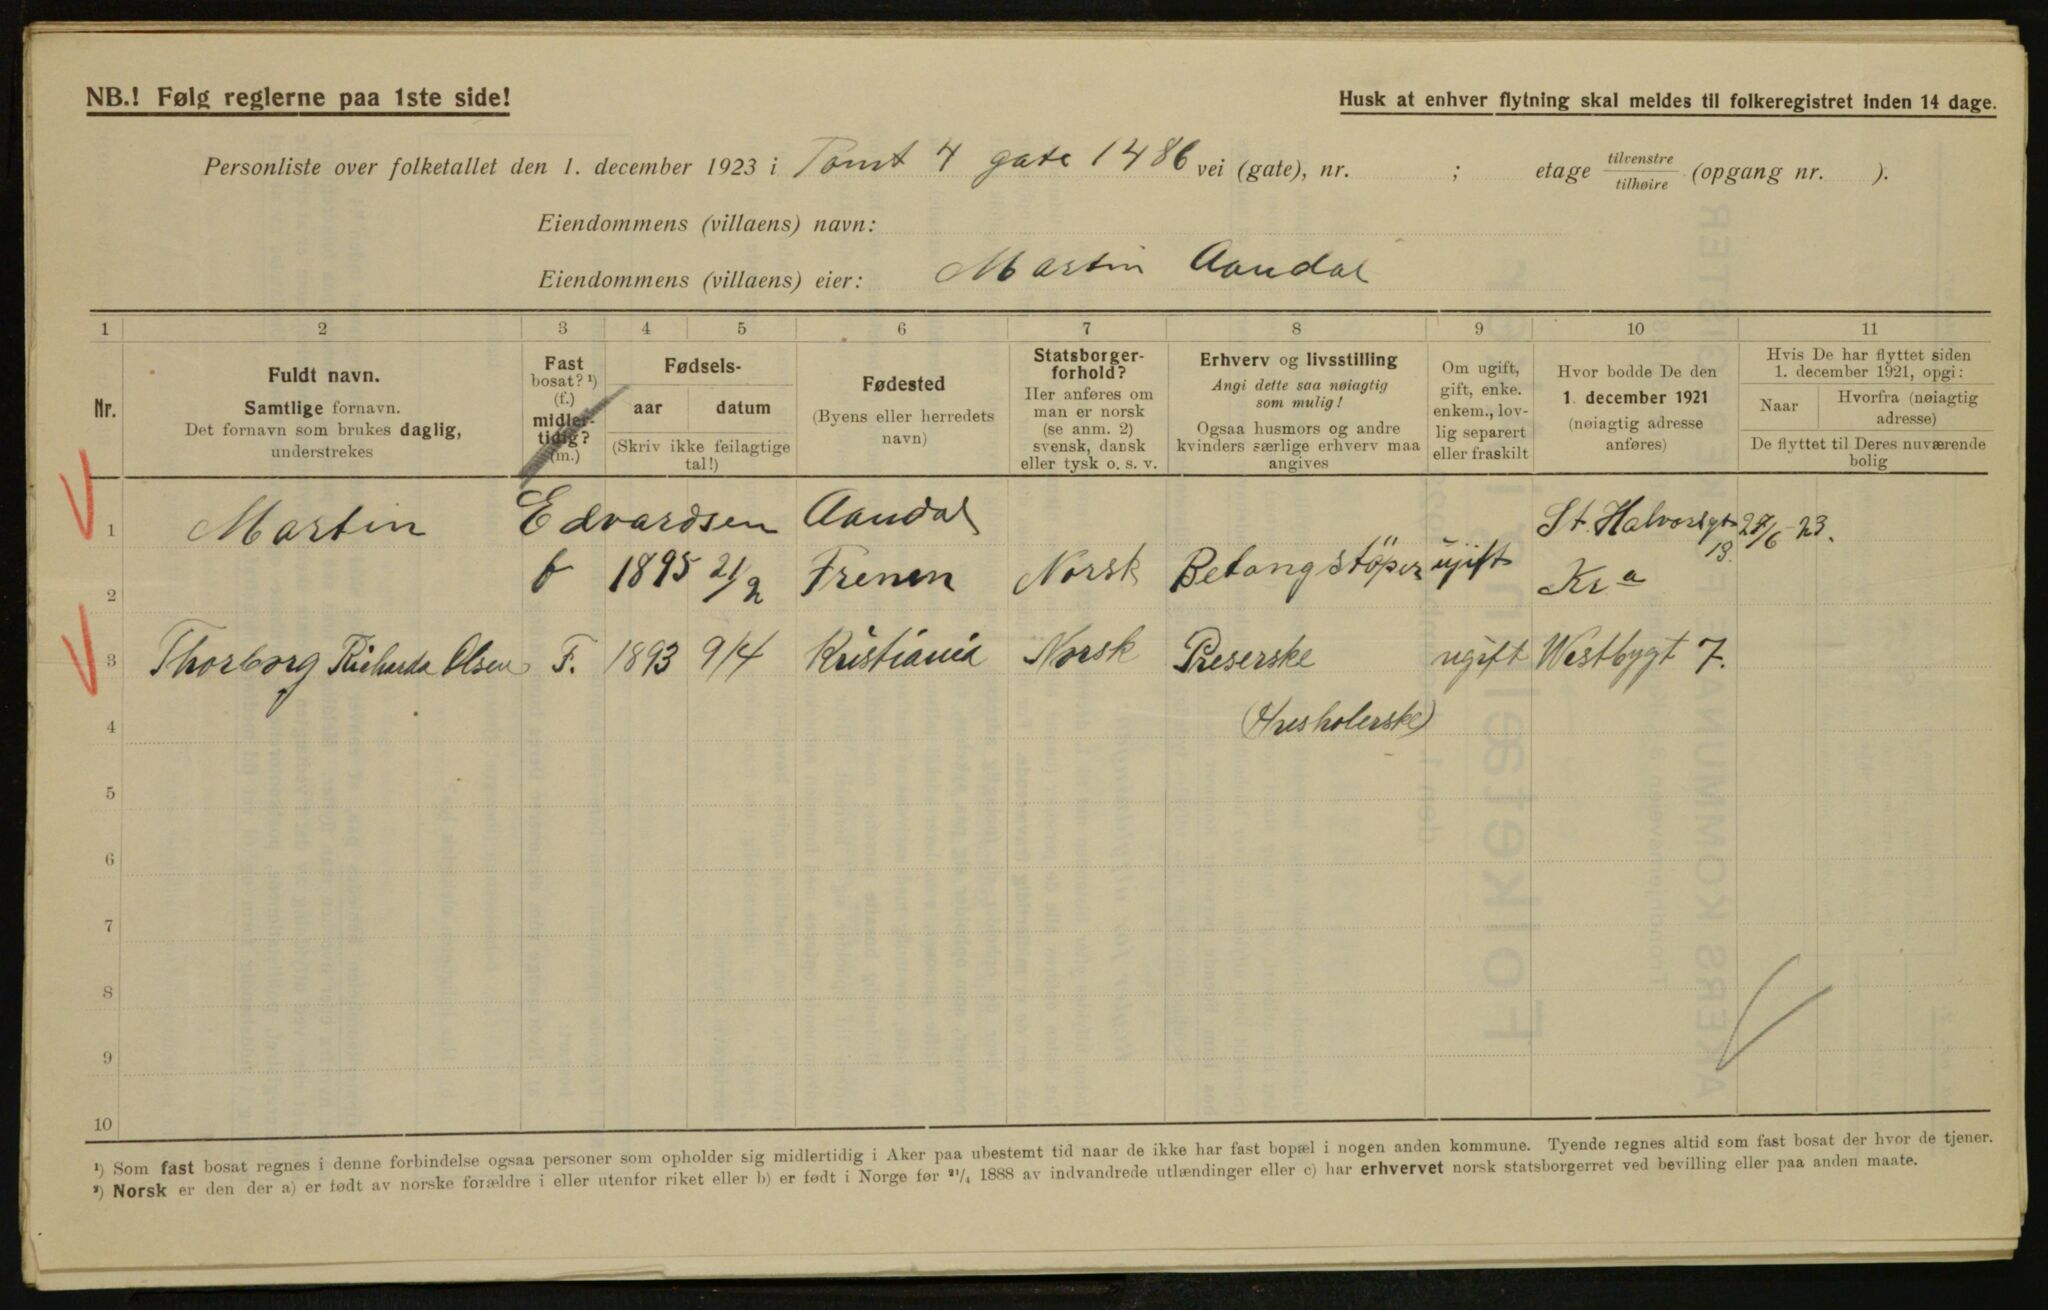 NB.! Følg reglerne paa 1ste side!
Husk at enhver flytning skal meldes til folkeregistret inden 14 dage.
Personliste over folketallet den 1. december 1923 i Tomt 4 gate 1486 vei (gate), nr. ; etage tilvenstre / tilhøire (opgang nr. ).
Eiendommens (villaens) navn:
Eiendommens (villaens) eier: Martin Aandal
1 2 3 4 5 6 7 8 9 10 11
Nr.
Fuldt navn.
Samtlige fornavn.
Det fornavn som brukes daglig,
understrekes
Fast
bosat? ¹)
(f.)
midler-
tidig?
(m.)
Fødsels-
aar datum
(Skriv ikke feilagtige
tal!)
Fødested
(Byens eller herredets
navn)
Statsborger-
forhold?
Her anføres om
man er norsk
(se anm. 2)
svensk, dansk
eller tysk o. s. v.
Erhverv og livsstilling
Angi dette saa nøiagtig
som mulig!
Ogsaa husmors og andre
kvinders særlige erhverv maa
angives
Om ugift,
gift, enke.
enkem., lov-
lig separert
eller fraskilt
Hvor bodde De den
1. december 1921
(nøiagtig adresse
anføres)
Hvis De har flyttet siden
1. december 1921, opgi:
Naar Hvorfra (nøiagtig
adresse)
De flyttet til Deres nuværende
bolig
1 Martin Edvardsen Aandal St. Halvorsgt 13. 27/6-23.
2 f 1895 21/2 Frenen Norsk Betongstöper ugift Kra
3 Thorborg Richarda Olsen F. 1893 9/4 Kristiania Norsk Preserske ugift Westbygt 7.
4 (Husholerske)
5
6
7
8
9
10
¹) Som fast bosat regnes i denne forbindelse ogsaa personer som opholder sig midlertidig i Aker paa ubestemt tid naar de ikke har fast bopæl i nogen anden kommune. Tyende regnes altid som fast bosat der hvor de tjener.
²) Norsk er den der a) er født av norske forældre i eller utenfor riket eller b) er født i Norge før ²¹/₄ 1888 av indvandrede utlændinger eller c) har erhvervet norsk statsborgerret ved bevilling eller paa anden maate.